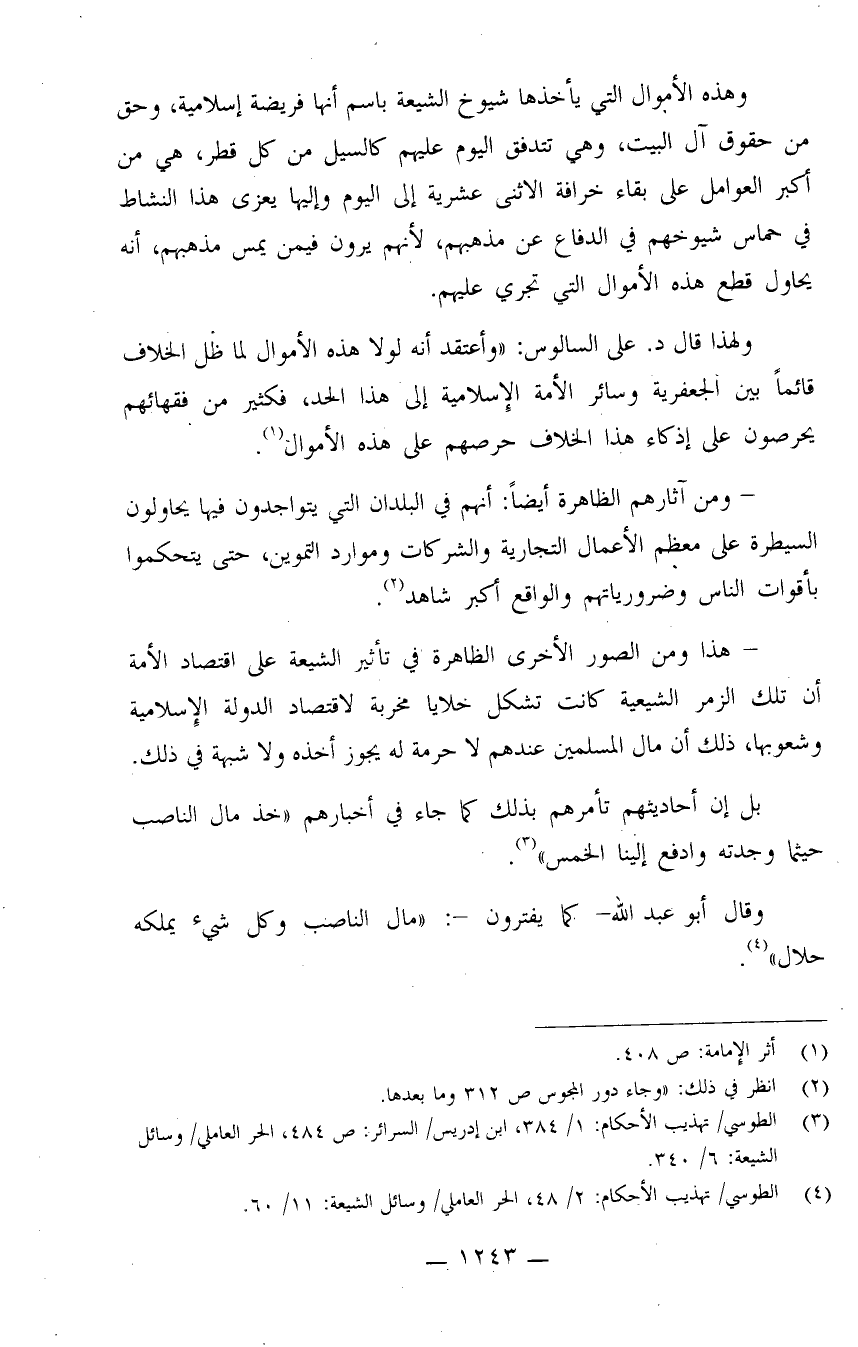 وهذه الأموال التي يأخذها شيوخ الشيعة باسم أنها فريضة إسلامية، وحق
من حقوق آل البيت، وهي تتدفق اليوم عليهم كالسيل من كل قطر، هي من
أكبر العوامل على بقاء خرافة الاثنى عشرية إلى اليوم وإليها يعزى هذا النشاط
في حماس شيوخهم في الدفاع عن مذهبهم، لأنهم يرون فيمن يمس مذهبهم، أنه
يحاول قطع هذه الأموال التي تجري عليهم.
ولهذا قال د. على السالوس: «وأعتقد أنه لولا هذه الأموال لما ظل الخلاف
قائماً بين الجعفرية وسائر الأمة الإسلامية إلى هذا الحد، فكثير من فقهائهم
يحرصون على إذكاء هذا الخلاف حرصهم على هذه الأموال(١).
– ومن آثارهم الظاهرة أيضاً: أنهم في البلدان التي يتواجدون فيها يحاولون
السيطرة على معظم الأعمال التجارية والشركات وموارد التموين، حتى يتحكموا
بأقوات الناس وضرورياتهم والواقع أكبر شاهد(٢).
– هذا ومن الصور الأخرى الظاهرة في تأثير الشيعة على اقتصاد الأمة
أن تلك الزمر الشيعية كانت تشكل خلايا مخربة لاقتصاد الدولة الإسلامية
وشعوبها، ذلك أن مال المسلمين عندهم لا حرمة له يجوز أخذه ولا شبهة في ذلك.
بل إن أحاديثهم تأمرهم بذلك كما جاء في أخبارهم «خذ مال الناصب
حيثما وجدته وادفع إلينا الخمس»(٣).
وقال أبو عبد الله– كما يفترون –: «مال الناصب وكل شيء يملكه
حلال»(٤).
(١) أثر الإمامة: ص ٤٠٨.
(٢) انظر في ذلك: «وجاء دور المجوس ص ٣١٢ وما بعدها.
(٣) الطوسي/ تهذيب الأحكام: ١/ ٣٨٤، ابن إدريس/ السرائر: ص ٤٨٤، الحر العاملي/ وسائل
الشيعة: ٦/ ٣٤٠.
(٤) الطوسي/ تهذيب الأحكام: ٢/ ٤٨، الحر العاملي/ وسائل الشيعة: ١١/ ٦٠.
— ١٢٤٣ —